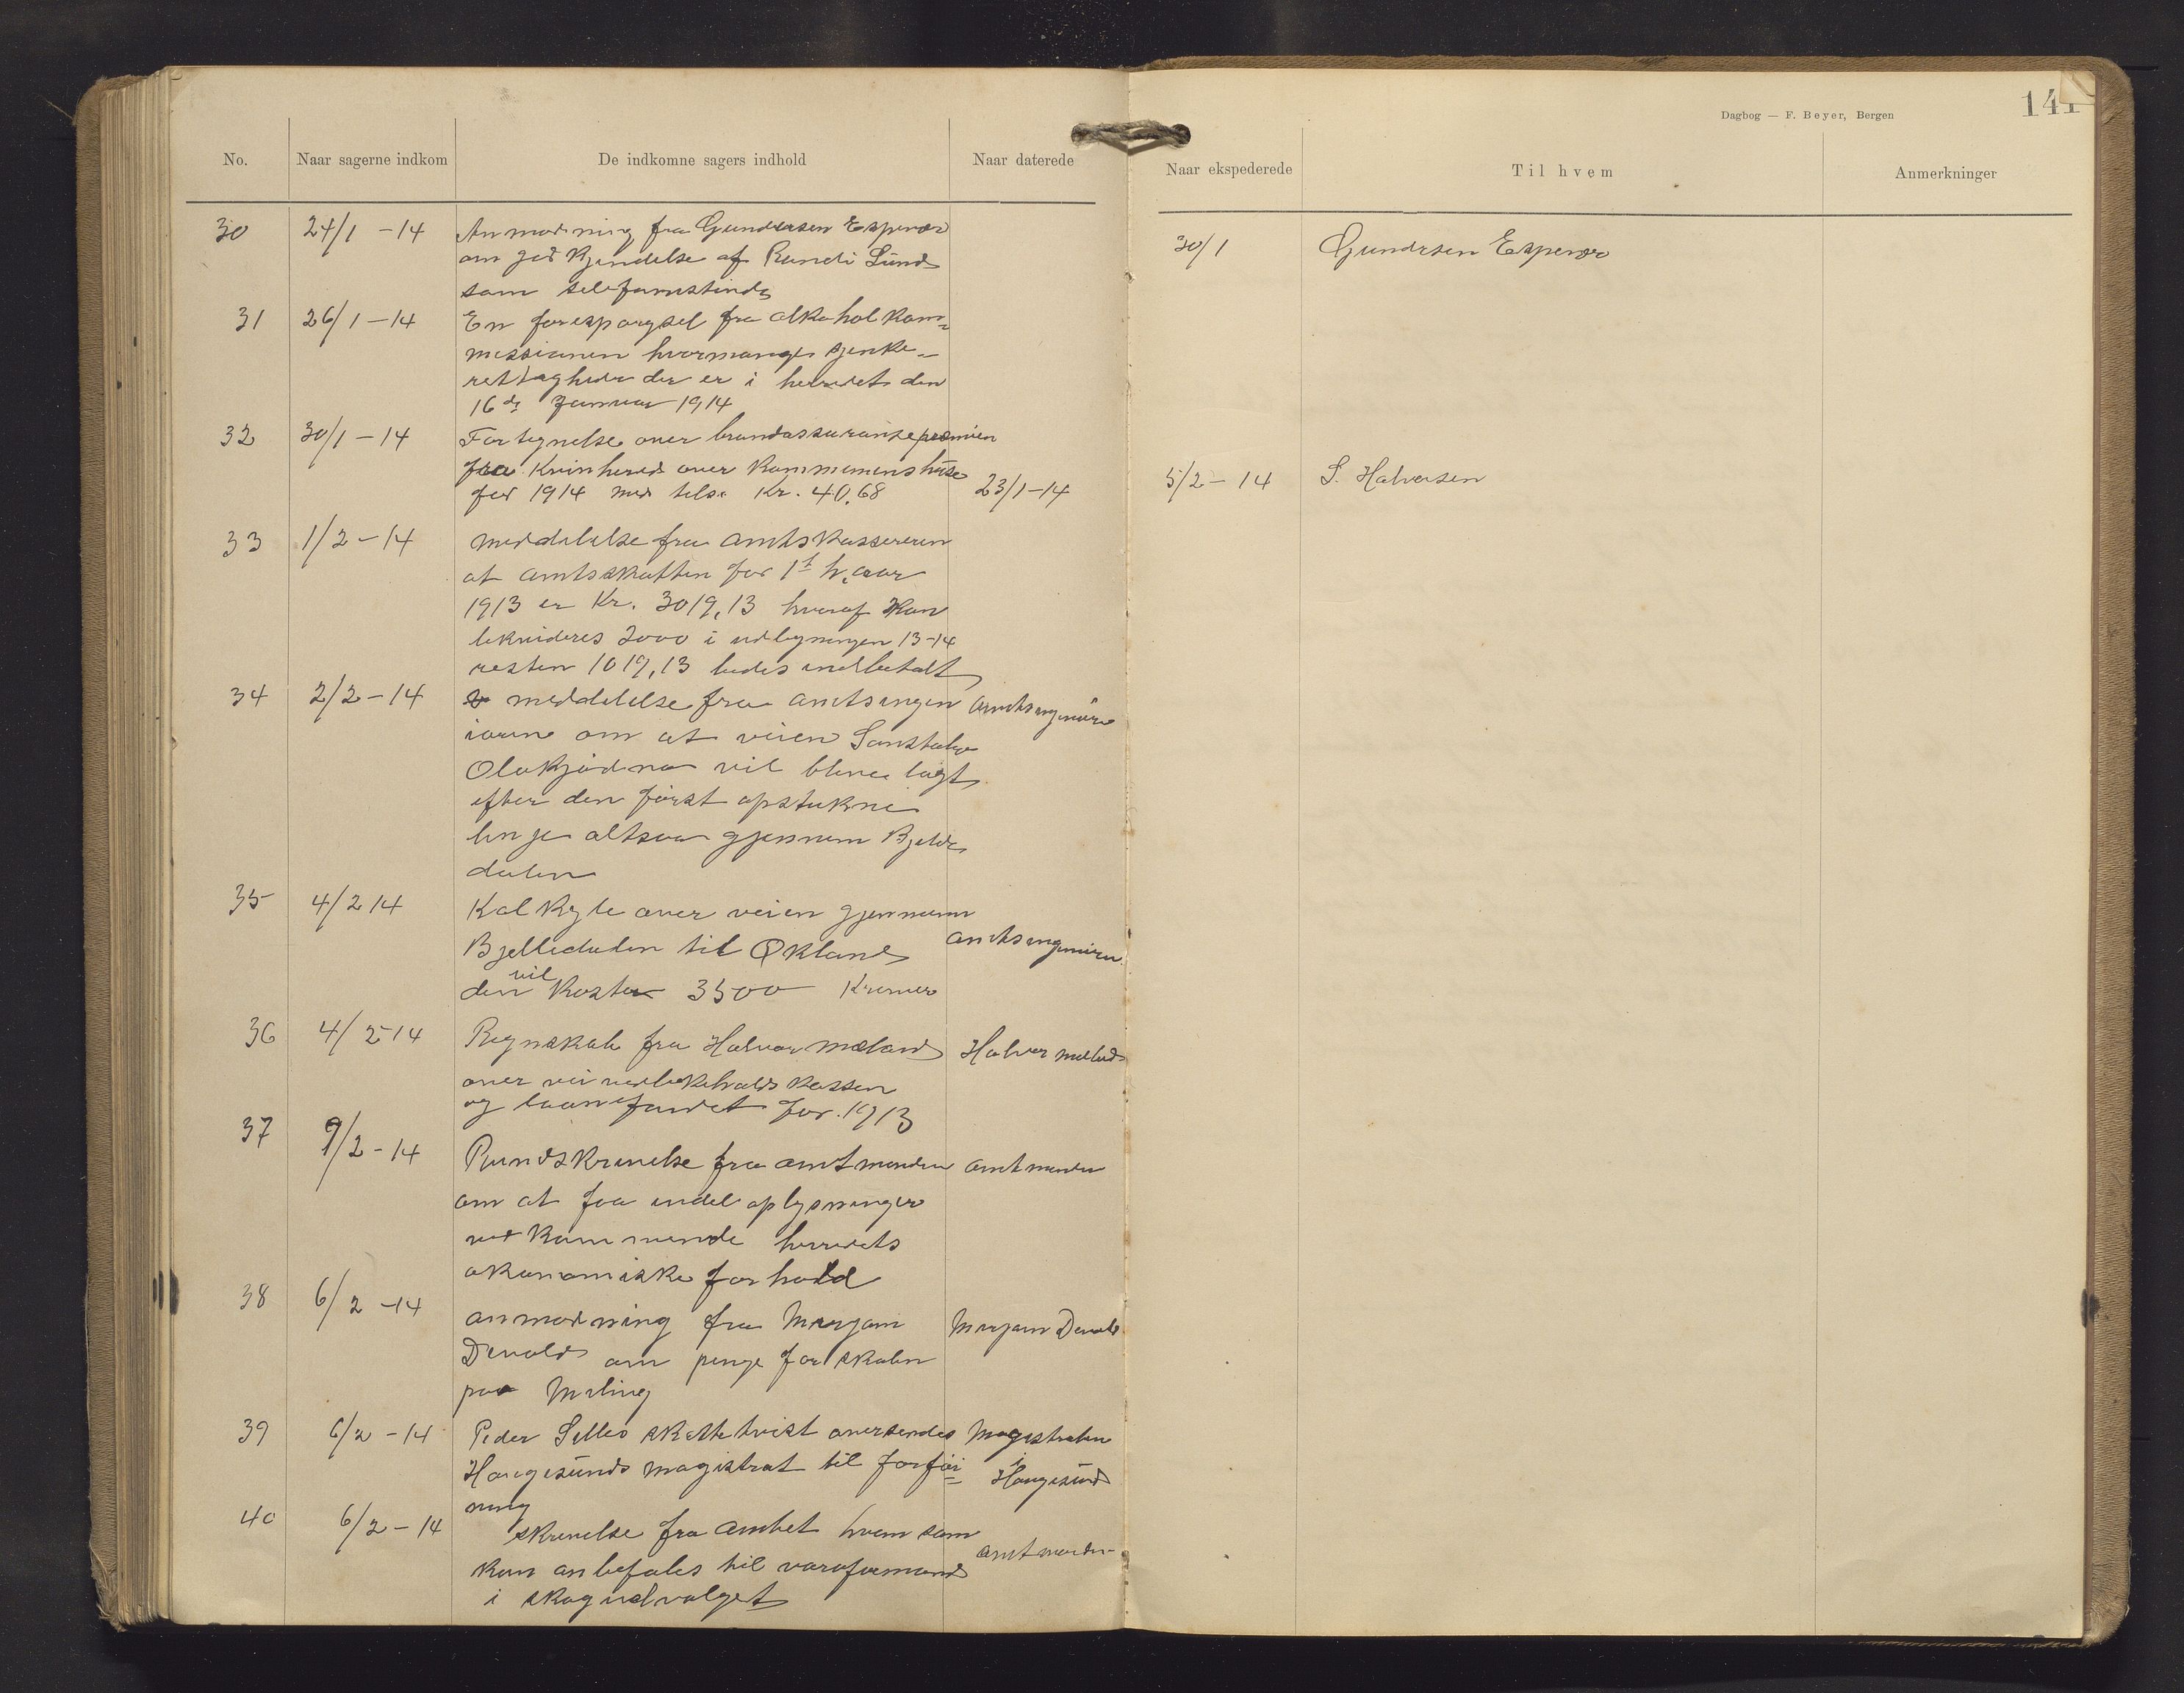 Dagbog — F. Beyer, Bergen
141
No.
Naar sagerne indkom
De indkomne sagers indhold
Naar daterede
Naar ekspederede
Til hvem
Anmerkninger
30 24/1 -14 Anmodning fra Gundersen Espevær
om godkjendelse af Lund
som telefonistinde
30/1 Gundersen Espevær
31 26/1 -14 En forespørgsel fra alkohol kom-
missionen hvormange sjenke-
rettigheder der er i herredet den
16de Januar 1914
32 30/1 -14 Fortegnelse over brandassuransepræmien
fra Kvinhered over Kommunens huse
for 1914 med tils. Kr. 40,68 23/1-14
5/2 - 14 S. Halvorsen
33 1/2 -14 meddelelse fra amtskassereren
at amtsskatten for 1st h.aar
1913 er Kr. 3019,13 hvoraf Kan
likvideres 2000 i udlygningen 13-14
resten 1019,13 bedes indbetalt
34 2/2 -14 meddelelse fra amtsingen amtsingeniøren
iøren om at veien
Olakjødna vil blive lagt
efter den først opstukne
linje altsaa gjennem Bjelde
dalen
35 4/2 14 Kalkyle over veien gjennem
Bjelledalen til Økland amtsingeniøren
den vil Koste 3500 Kroner
36 4/2-14 Regnskab fra Halvor Mæland Halvor Mæland
over veivedlikeholds kassen
og laanefondet for 1913
37 9/2 -14 Rundskrivelse fra amtmanden amtmanden
om at faa endel oplysninger
vedkommende herredets
økonomiske forhold
38 6/2 -14 anmodning fra Mirjam Mirjam Devold
Devold om penge for skolen
paa Mæling
39 6/2 -14 Peder skattetvist oversendes Magistraten
Haugesunds magistrat til forføi- i Haugesund
ning
40 6/2 -14 skrivelse fra amtet hvem som
kan anbefales til varaformand amtmanden
i skogudvalget